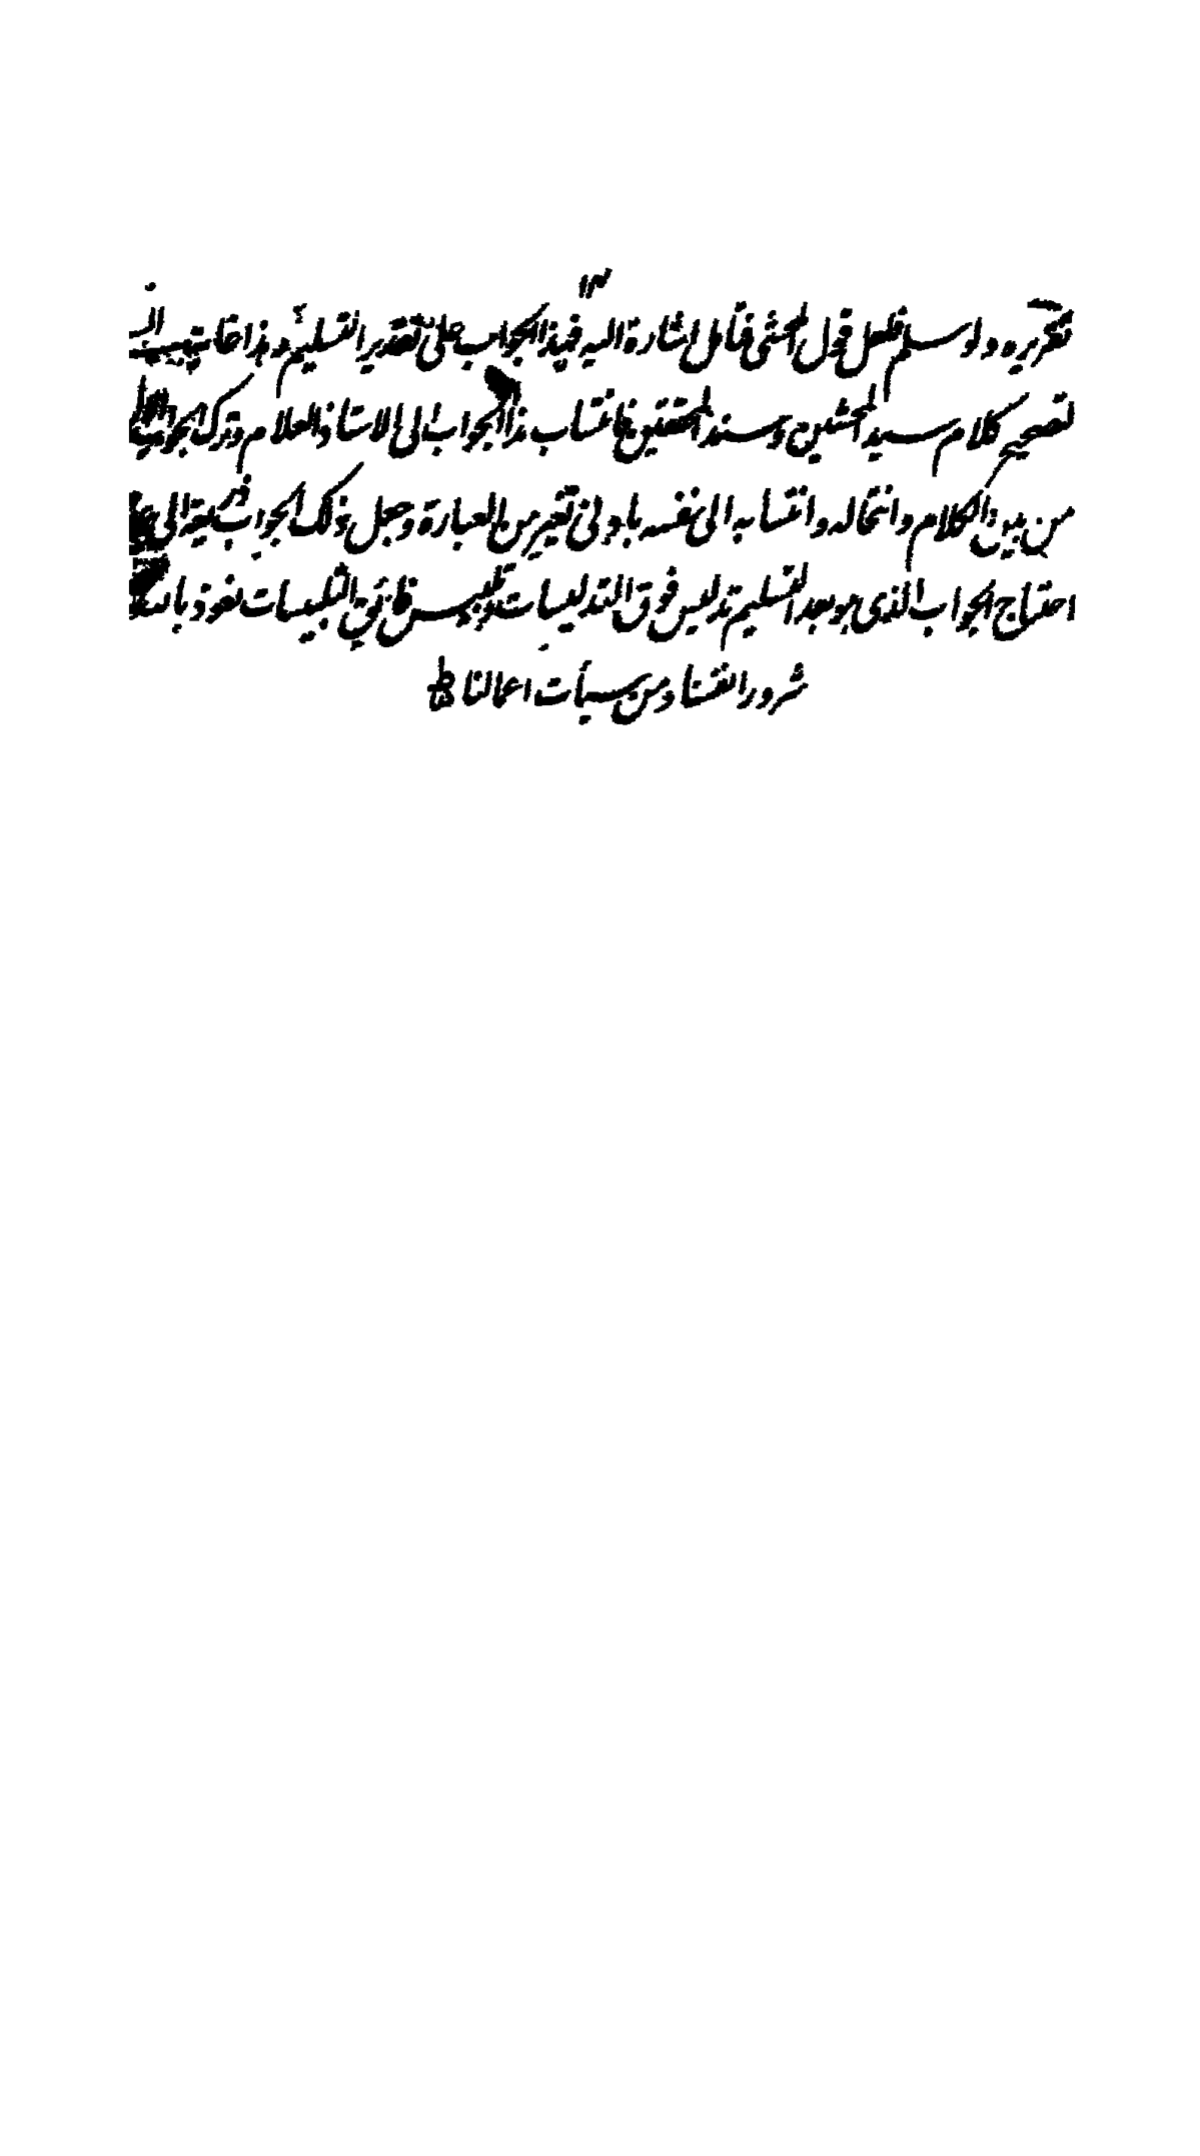 ١٣
تقريره ولو سلم فلعل قول المحشى فتأمل اشارة اليه فهذا الجواب على تقدير التسليم وهذا خاتمة
لتصحيح كلام سيد المحشين وسند المحققين فانتساب هذا الجواب الى الاستاذ العلام وترك الجواب
من بين الكلام وانتحاله وانتسابه الى نفسه بادنى تغير من العبارة وجعل ذلك الجواب ذريعة الى
احتياج الجواب الذى هو بعد التسليم تدليس فوق التدليسات وتلبيس فائق التلبيسات نعوذ بالله
شرور انفسنا ومن سيأت اعمالنا